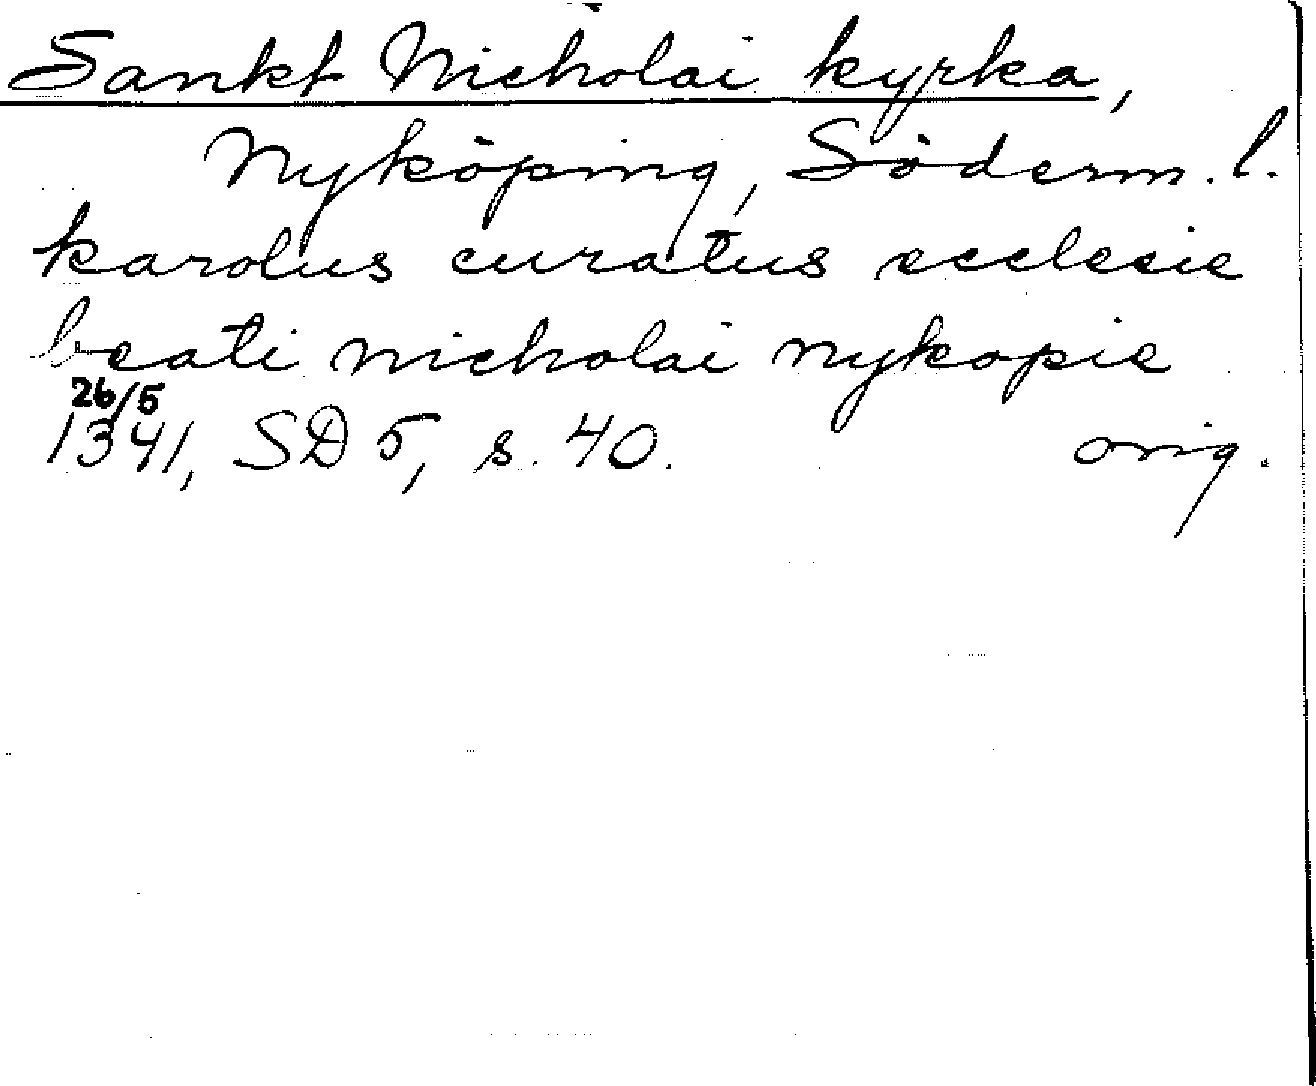 Sankt Nicholai kyrka,
Nyköping, Söderm. l.
karolus curatus ecclesie
beati nicholai nykopie
26/5
1341, SD 5, s. 40. orig.